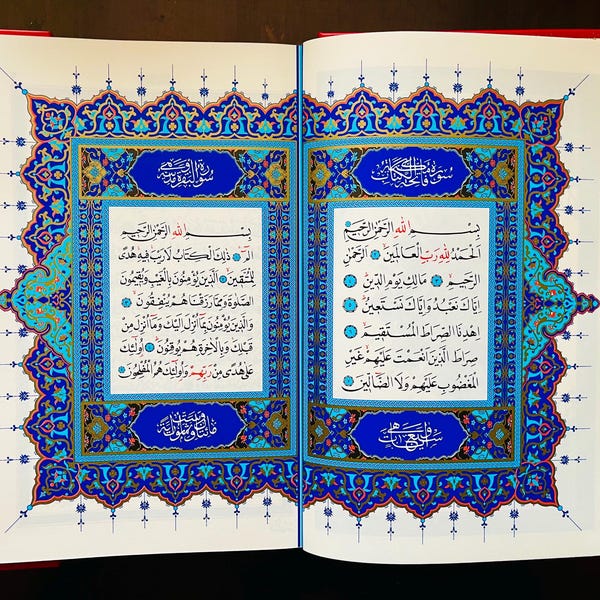 سورة فاتحة الكتاب
بِسْمِ اللهِ الرَّحْمٰنِ الرَّحِيمِ
اَلْحَمْدُ لِلّٰهِ رَبِّ الْعَالَمِينَ الرَّحْمٰنِ
الرَّحِيمِ مَالِكِ يَوْمِ الدِّينِ
اِيَّاكَ نَعْبُدُ وَاِيَّاكَ نَسْتَعِينُ
اِهْدِنَا الصِّرَاطَ الْمُسْتَقِيمَ
صِرَاطَ الَّذِينَ اَنْعَمْتَ عَلَيْهِمْ غَيْرِ
الْمَغْضُوبِ عَلَيْهِمْ وَلَا الضَّالِّينَ
وهي سبع آيات
سورة البقرة
بِسْمِ اللهِ الرَّحْمٰنِ الرَّحِيمِ
الٓمٓ ذٰلِكَ الْكِتَابُ لَا رَيْبَ فِيهِ هُدًى
لِلْمُتَّقِينَ اَلَّذِينَ يُؤْمِنُونَ بِالْغَيْبِ وَيُقِيمُونَ
الصَّلٰوةَ وَمِمَّا رَزَقْنَاهُمْ يُنْفِقُونَ
وَالَّذِينَ يُؤْمِنُونَ بِمَا اُنْزِلَ اِلَيْكَ وَمَا اُنْزِلَ مِنْ
قَبْلِكَ وَبِالْاٰخِرَةِ هُمْ يُوقِنُونَ اُولٰئِكَ
عَلٰى هُدًى مِنْ رَبِّهِمْ وَاُولٰئِكَ هُمُ الْمُفْلِحُونَ